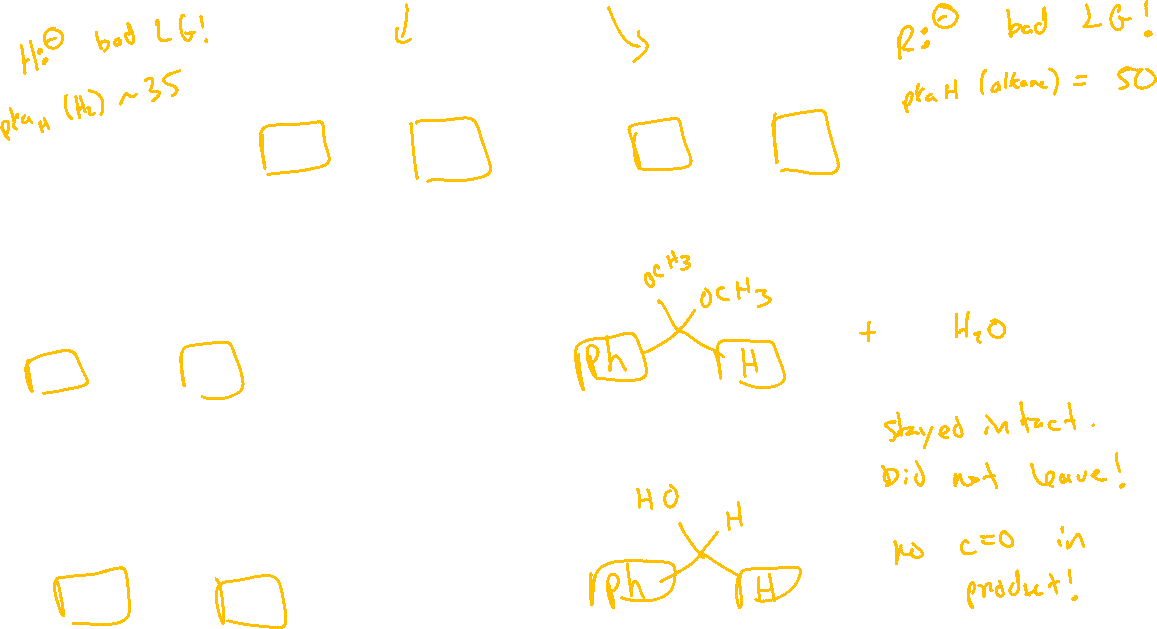 H:⊖ bad LG!
pKaH (H2) ~35
R:⊖ bad LG!
pKaH (alkane) = 50
OCH3
OCH3
Ph H + H2O
Stayed intact.
Did not leave!
HO H
Ph H
no C=O in
product!